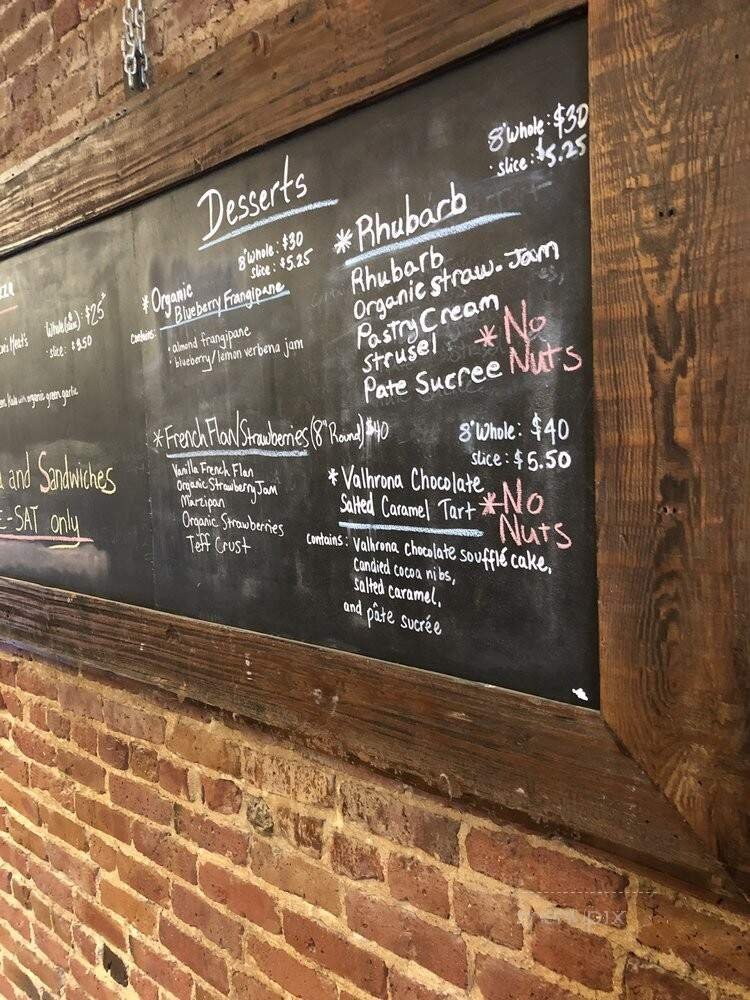 Whole(10in): $25
slice: $3.50
with organic green garlic
and Sandwiches
-SAT only
Desserts
8"Whole: $30
Slice: $5.25
*Organic
Blueberry Frangipane
contains:
·almond frangipane
·blueberry/lemon verbena jam
*French Flan/Strawberries (8" Round) $40
Vanilla French Flan
Organic Strawberry Jam
Marzipan
Organic Strawberries
Teff Crust
8"Whole: $30
·slice: $5.25
*Rhubarb
Rhubarb
Organic Straw. Jam
Pastry Cream
Strusel
Pate Sucree
*No
Nuts
8"Whole: $40
slice: $5.50
*Valhrona Chocolate
Salted Caramel Tart
*No
Nuts
contains: Valhrona chocolate soufflé cake,
candied cocoa nibs,
salted caramel,
and pâte sucrée